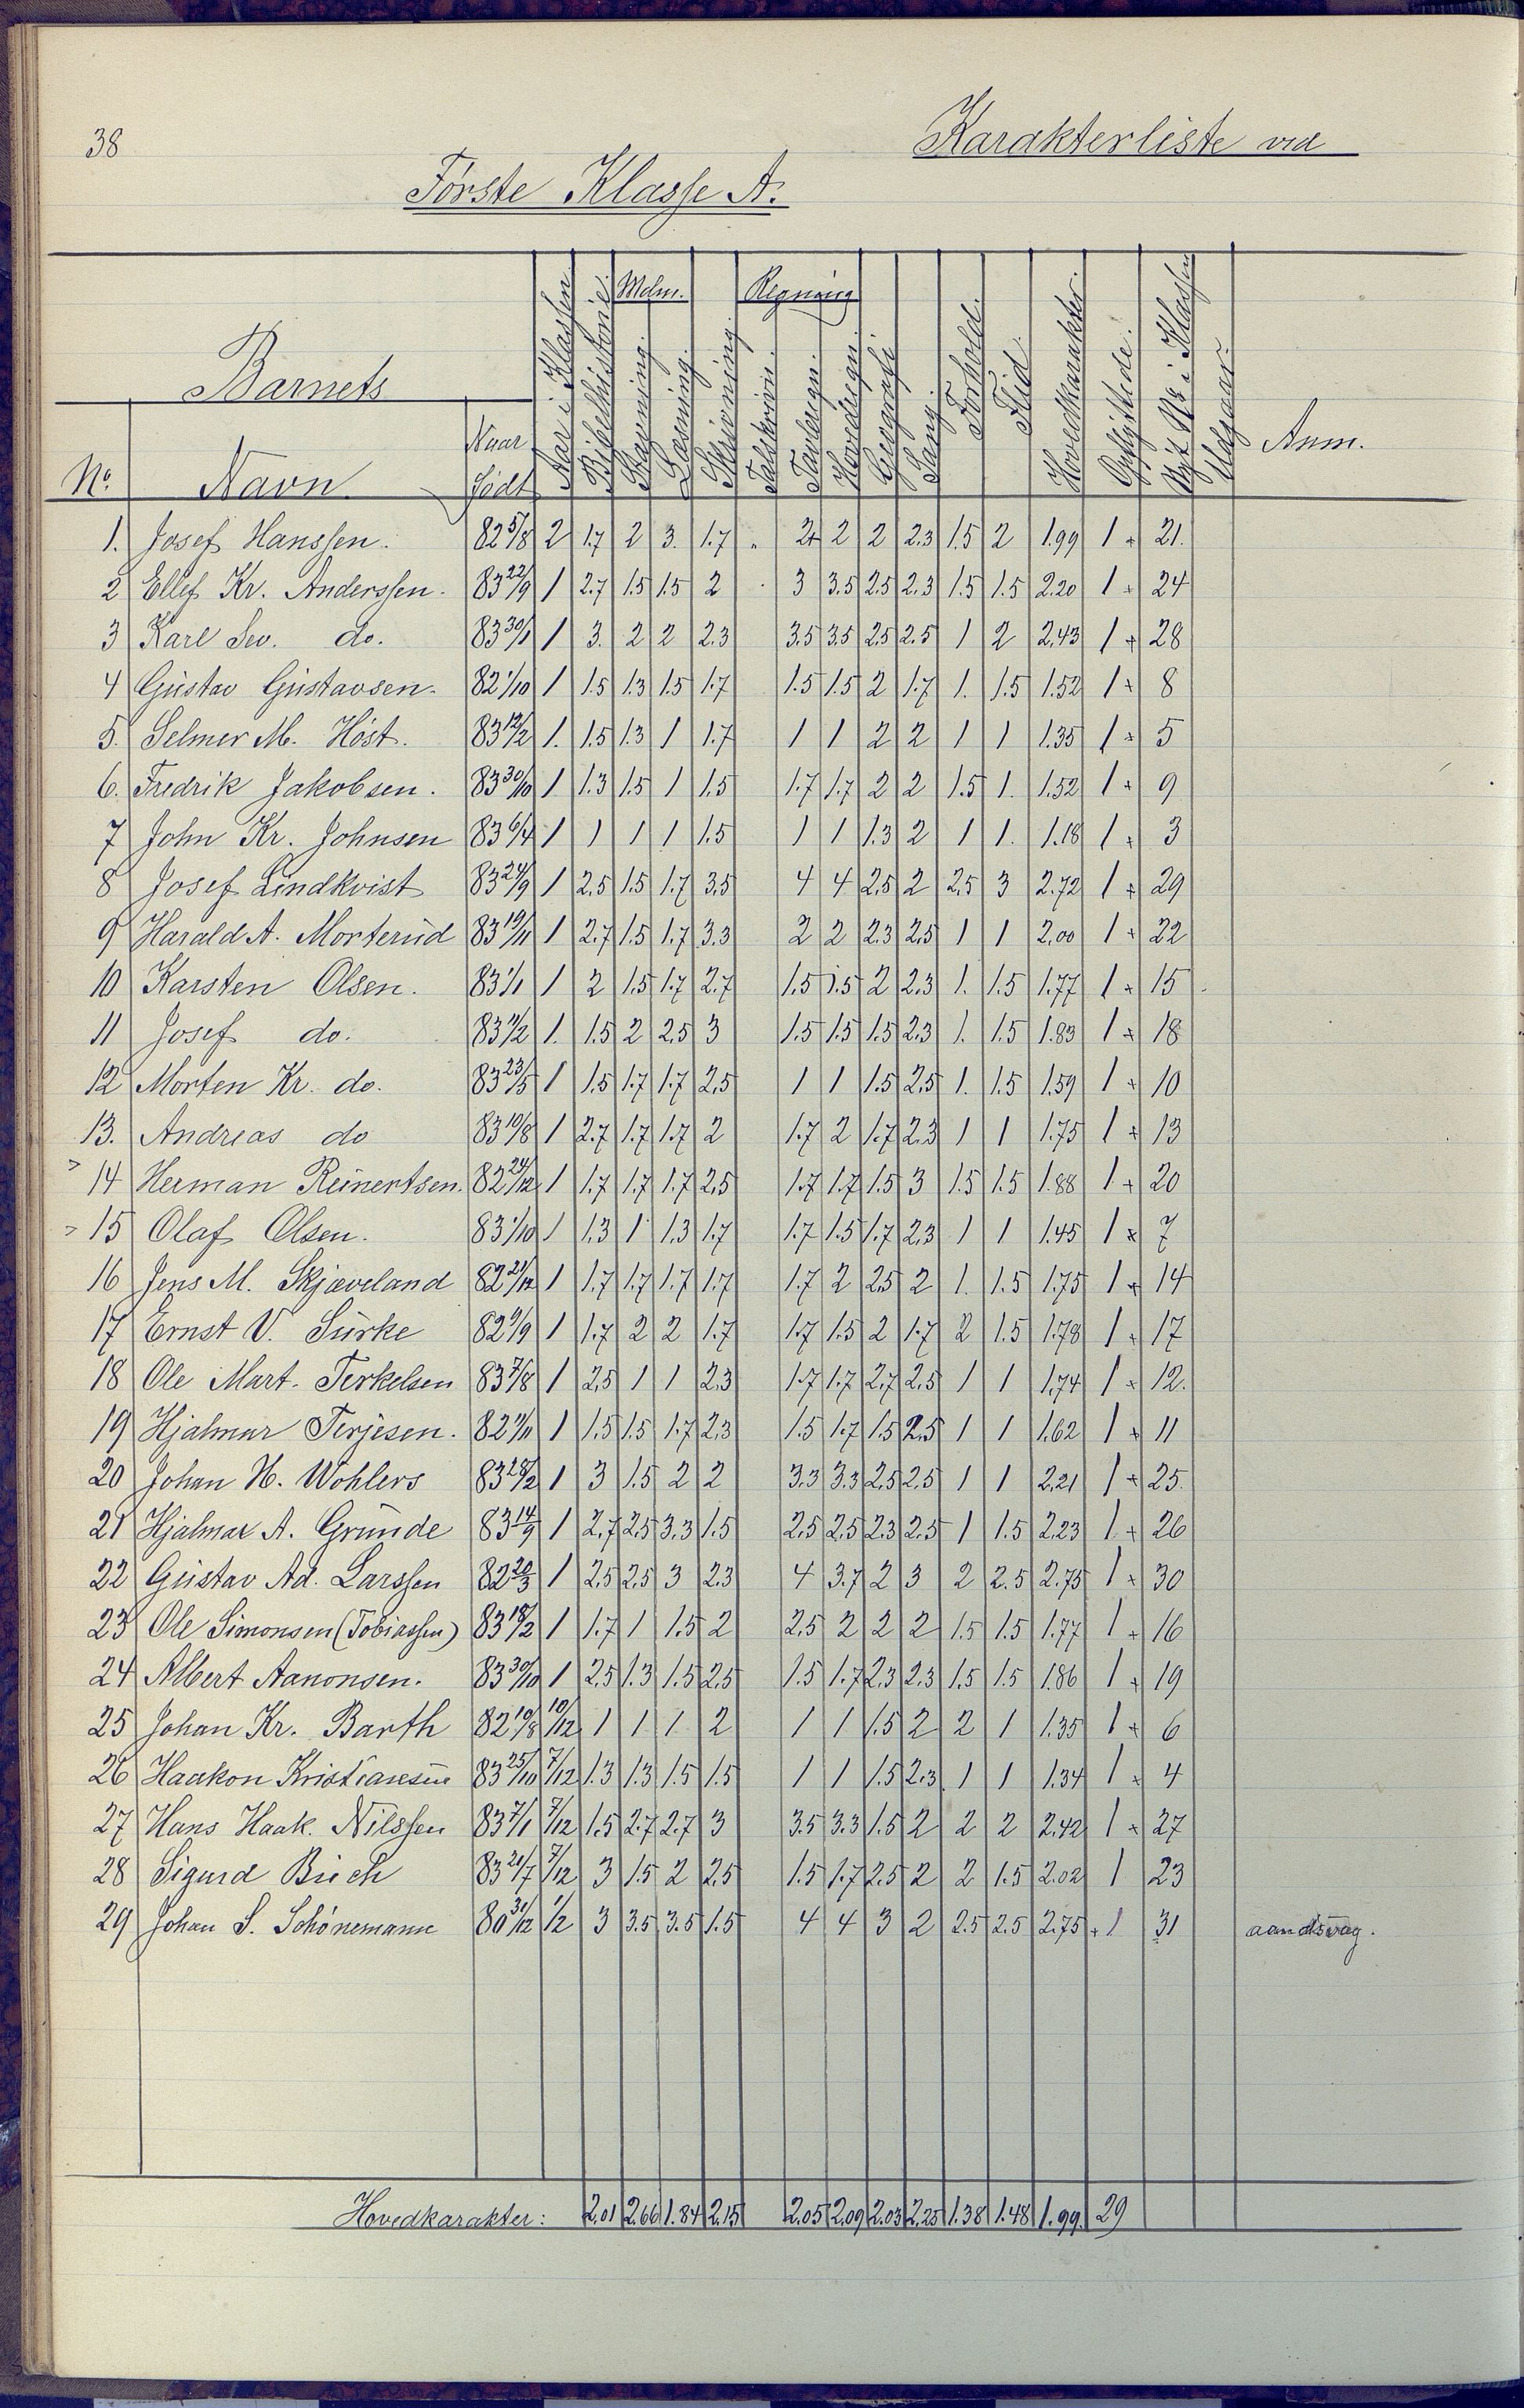 38
Karakterliste ved
Første Klasse A.
Barnets
No. Navn. Naar Født Aar i Klassen. Bibelhistorie Mdm. Stavning. Læsning. Skrivning Regning Talskrivn. Tavleregn. Hovedregn. Geografi Sang. Forhold. Flid. Hovedkarakter. Opflyttede. Nyt No i Klassen Udgaar. Anm.
1. Josef Hanssen. 82 5/8 2 1.7 2 3. 1.7 " 2+ 2 2 2.3 1.5 2 1.99 1 + 21.
2 Ellef Kr. Anderssen. 83 22/9 1 2.7 1.5 1.5 2 3 3.5 2.5 2.3 1.5 1.5 2.20 1 + 24
3 Karl Sev. do. 83 30/1 1 3. 2 2 2.3 3.5 3.5 2.5 2.5 1 2 2.43 1 + 28
4 Gustav Gustavsen. 82 1/10 1 1.5 1.3 1.5 1.7 1.5 1.5 2 1.7 1. 1.5 1.52 1 + 8
5. Selmer M. Høst. 83 12/2 1. 1.5 1.3 1 1.7 1 1 2 2 1 1 1.35 1 + 5
6. Fredrik Jakobsen. 83 30/10 1 1.3 1.5 1 1.5 1.7 1.7 2 2 1.5 1. 1.52 1 + 9
7 John Kr. Johnsen 83 6/4 1 1 1 1 1.5 1 1 1.3 2 1 1. 1.18 1 + 3
8 Josef Lindkvist 83 24/9 1 2.5 1.5 1.7 3.5 4 4 2.5 2 2.5 3 2.72 1 + 29
9 Harald A. Morterud 83 19/11 1 2.7 1.5 1.7 3.3 2 2 2.3 2.5 1 1 2.00 1 + 22
10 Karsten Olsen. 83 1/1 1 2 1.5 1.7 2.7 1.5 1.5 2 2.3 1. 1.5 1.77 1 + 15
11 Josef do. 83 11/2 1. 1.5 2 2.5 3 1.5 1.5 1.5 2.3 1. 1.5 1.83 1 + 18
12 Morten Kr. do. 83 23/5 1 1.5 1.7 1.7 2.5 1 1 1.5 2.5 1. 1.5 1.59 1 + 10
13. Andreas do 83 10/8 1 2.7 1.7 1.7 2 1.7 2 1.7 2.3 1 1 1.75 1 + 13
14 Herman Reinertsen. 82 24/12 1 1.7 1.7 1.7 2.5 1.7 1.7 1.5 3 1.5 1.5 1.88 1 + 20
15 Olaf Olsen. 83 1/10 1 1.3 1 1.3 1.7 1.7 1.5 1.7 2.3 1 1 1.45 1 + 7
16 Jens M. Skjæveland 82 21/12 1 1.7 1.7 1.7 1.7 1.7 2 2.5 2 1. 1.5 1.75 1 + 14
17 Ernst V. Surke 82 9/9 1 1.7 2 2 1.7 1.7 1.5 2 1.7 2 1.5 1.78 1 + 17
18 Ole Mart. Terkelsen 83 7/8 1 2.5 1 1 2.3 1.7 1.7 2.7 2.5 1 1 1.74 1 + 12.
19 Hjalmar Terjesen. 82 11/11 1 1.5 1.5 1.7 2.3 1.5 1.7 1.5 2.5 1 1 1.62 1 + 11
20 Johan H. Wohlers 83 28/2 1 3 1.5 2 2 3.3 3.3 2.5 2.5 1 1 2.21 1 + 25.
21 Hjalmar A. Grunde 83 14/9 1 2.7 2.5 3.3 1.5 2.5 2.5 2.3 2.5 1 1.5 2.23 1 + 26
22 Gustav Ad. Larssen 82 20/3 1 2.5 2.5 3 2.3 4 3.7 2 3 2 2.5 2.75 1 + 30
23 Ole Simonsen (Tobiassen) 83 18/2 1 1.7 1 1.5 2 2.5 2 2 2 1.5 1.5 1.77 1 + 16
24 Albert Aanonsen. 83 30/10 1 2.5 1.3 1.5 2.5 1.5 1.7 2.3 2.3 1.5 1.5 1.86 1 + 19
25 Johan Kr. Barth 82 10/8 10/12 1 1 1 2 1 1 1.5 2 2 1 1.35 1 + 6
26 Haakon Kristiansen 83 25/10 7/12 1.3 1.3 1.5 1.5 1 1 1.5 2.3 1 1 1.34 1 + 4
27 Hans Haak. Nilssen 83 7/1 7/12 1.5 2.7 2.7 3 3.5 3.3 1.5 2 2 2 2.42 1 + 27
28 Sigurd Buch 83 21/7 7/12 3 1.5 2 2.5 1.5 1.7 2.5 2 2 1.5 2.02 1 23
29 Johan S. Schønemann 80 31/12 1/2 3 3.5 3.5 1.5 4 4 3 2 2.5 2.5 2.75 + 1 31 aandsvag.
Hovedkarakter: 2.01 2.66 1.84 2.15 2.05 2.09 2.03 2.25 1.38 1.48 1.99. 29